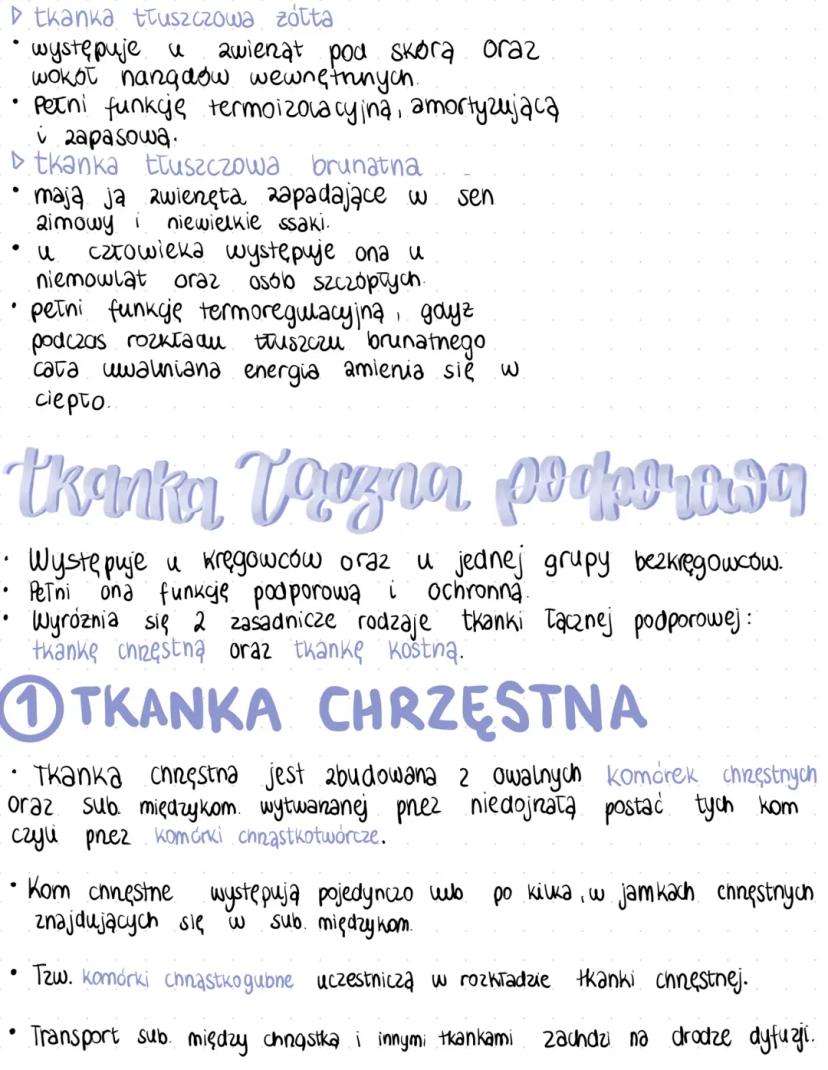 ▷ tkanka tłuszczowa żółta
• występuje u zwierząt pod skórą oraz
wokół narządów wewnętrznych.
• Pełni funkcję termoizolacyjną, amortyzującą
i zapasową.
▷ tkanka tłuszczowa brunatna
• mają ją zwierzęta zapadające w sen
zimowy i niewielkie ssaki.
• u człowieka występuje ona u
niemowląt oraz osób szczópłych.
• pełni funkcję termoregulacyjną, gdyż
podczas rozkładu tłuszczu brunatnego
cała uwalniana energia zmienia się w
ciepło.
tkanka łączna podporowa
• Występuje u kręgowców oraz u jednej grupy bezkręgowców.
• Pełni ona funkcję podporową i ochronną.
• Wyróżnia się 2 zasadnicze rodzaje tkanki łącznej podporowej:
tkankę chrzęstną oraz tkankę kostną.
① TKANKA CHRZĘSTNA
• Tkanka chrzęstna jest zbudowana z owalnych komórek chrzęstnych
oraz sub. międzykom. wytwarzanej przez niedojrzałą postać tych kom
czyli przez komórki chrząstkotwórcze.
• Kom chrzęstne występują pojedynczo lub po kilka, w jamkach chrzęstnych
znajdujących się w sub. międzykom.
• Tzw. komórki chrząstkogubne uczestniczą w rozkładzie tkanki chrzęstnej.
• Transport sub. między chrząstką i innymi tkankami zachdzi na drodze dyfuzji.